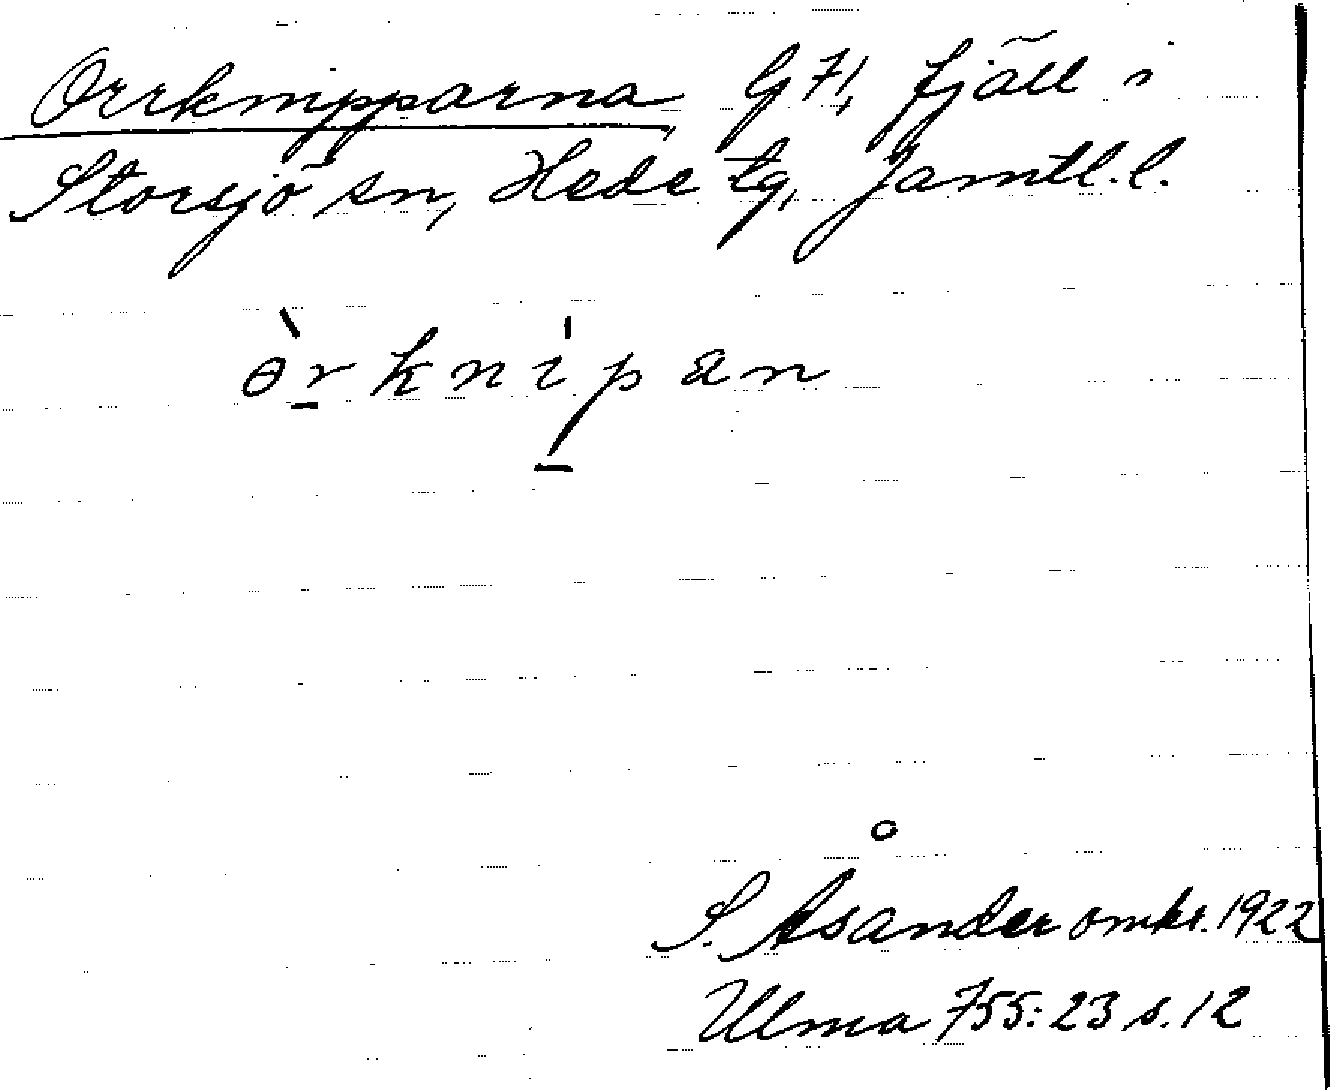 Orrknipparna G 71, fjäll i
Storsjö sn, Hede tg, Jämtl. l.
ɵ̀rknípan
S. Åsander omkr. 1922
Ulma 755:23 s. 12